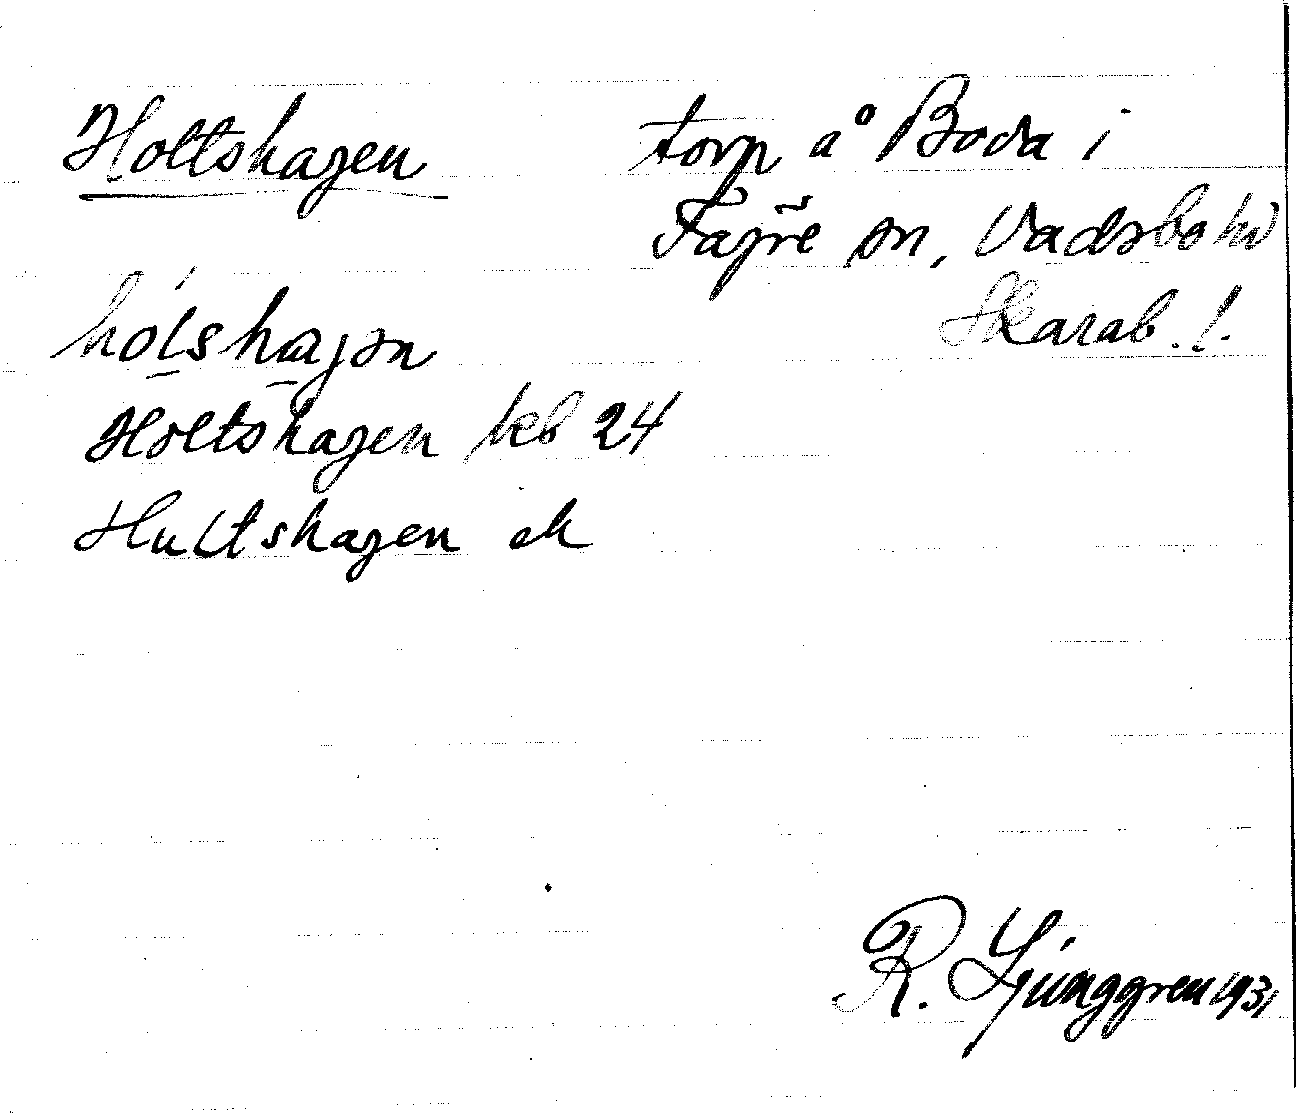 Holtshagen torp å Boda i
Fägre sn, Vadsbo hd
Skarab. l.
hólshagən
Holtshagen kb 24
Hultshagen ek
R. Ljunggren 1931